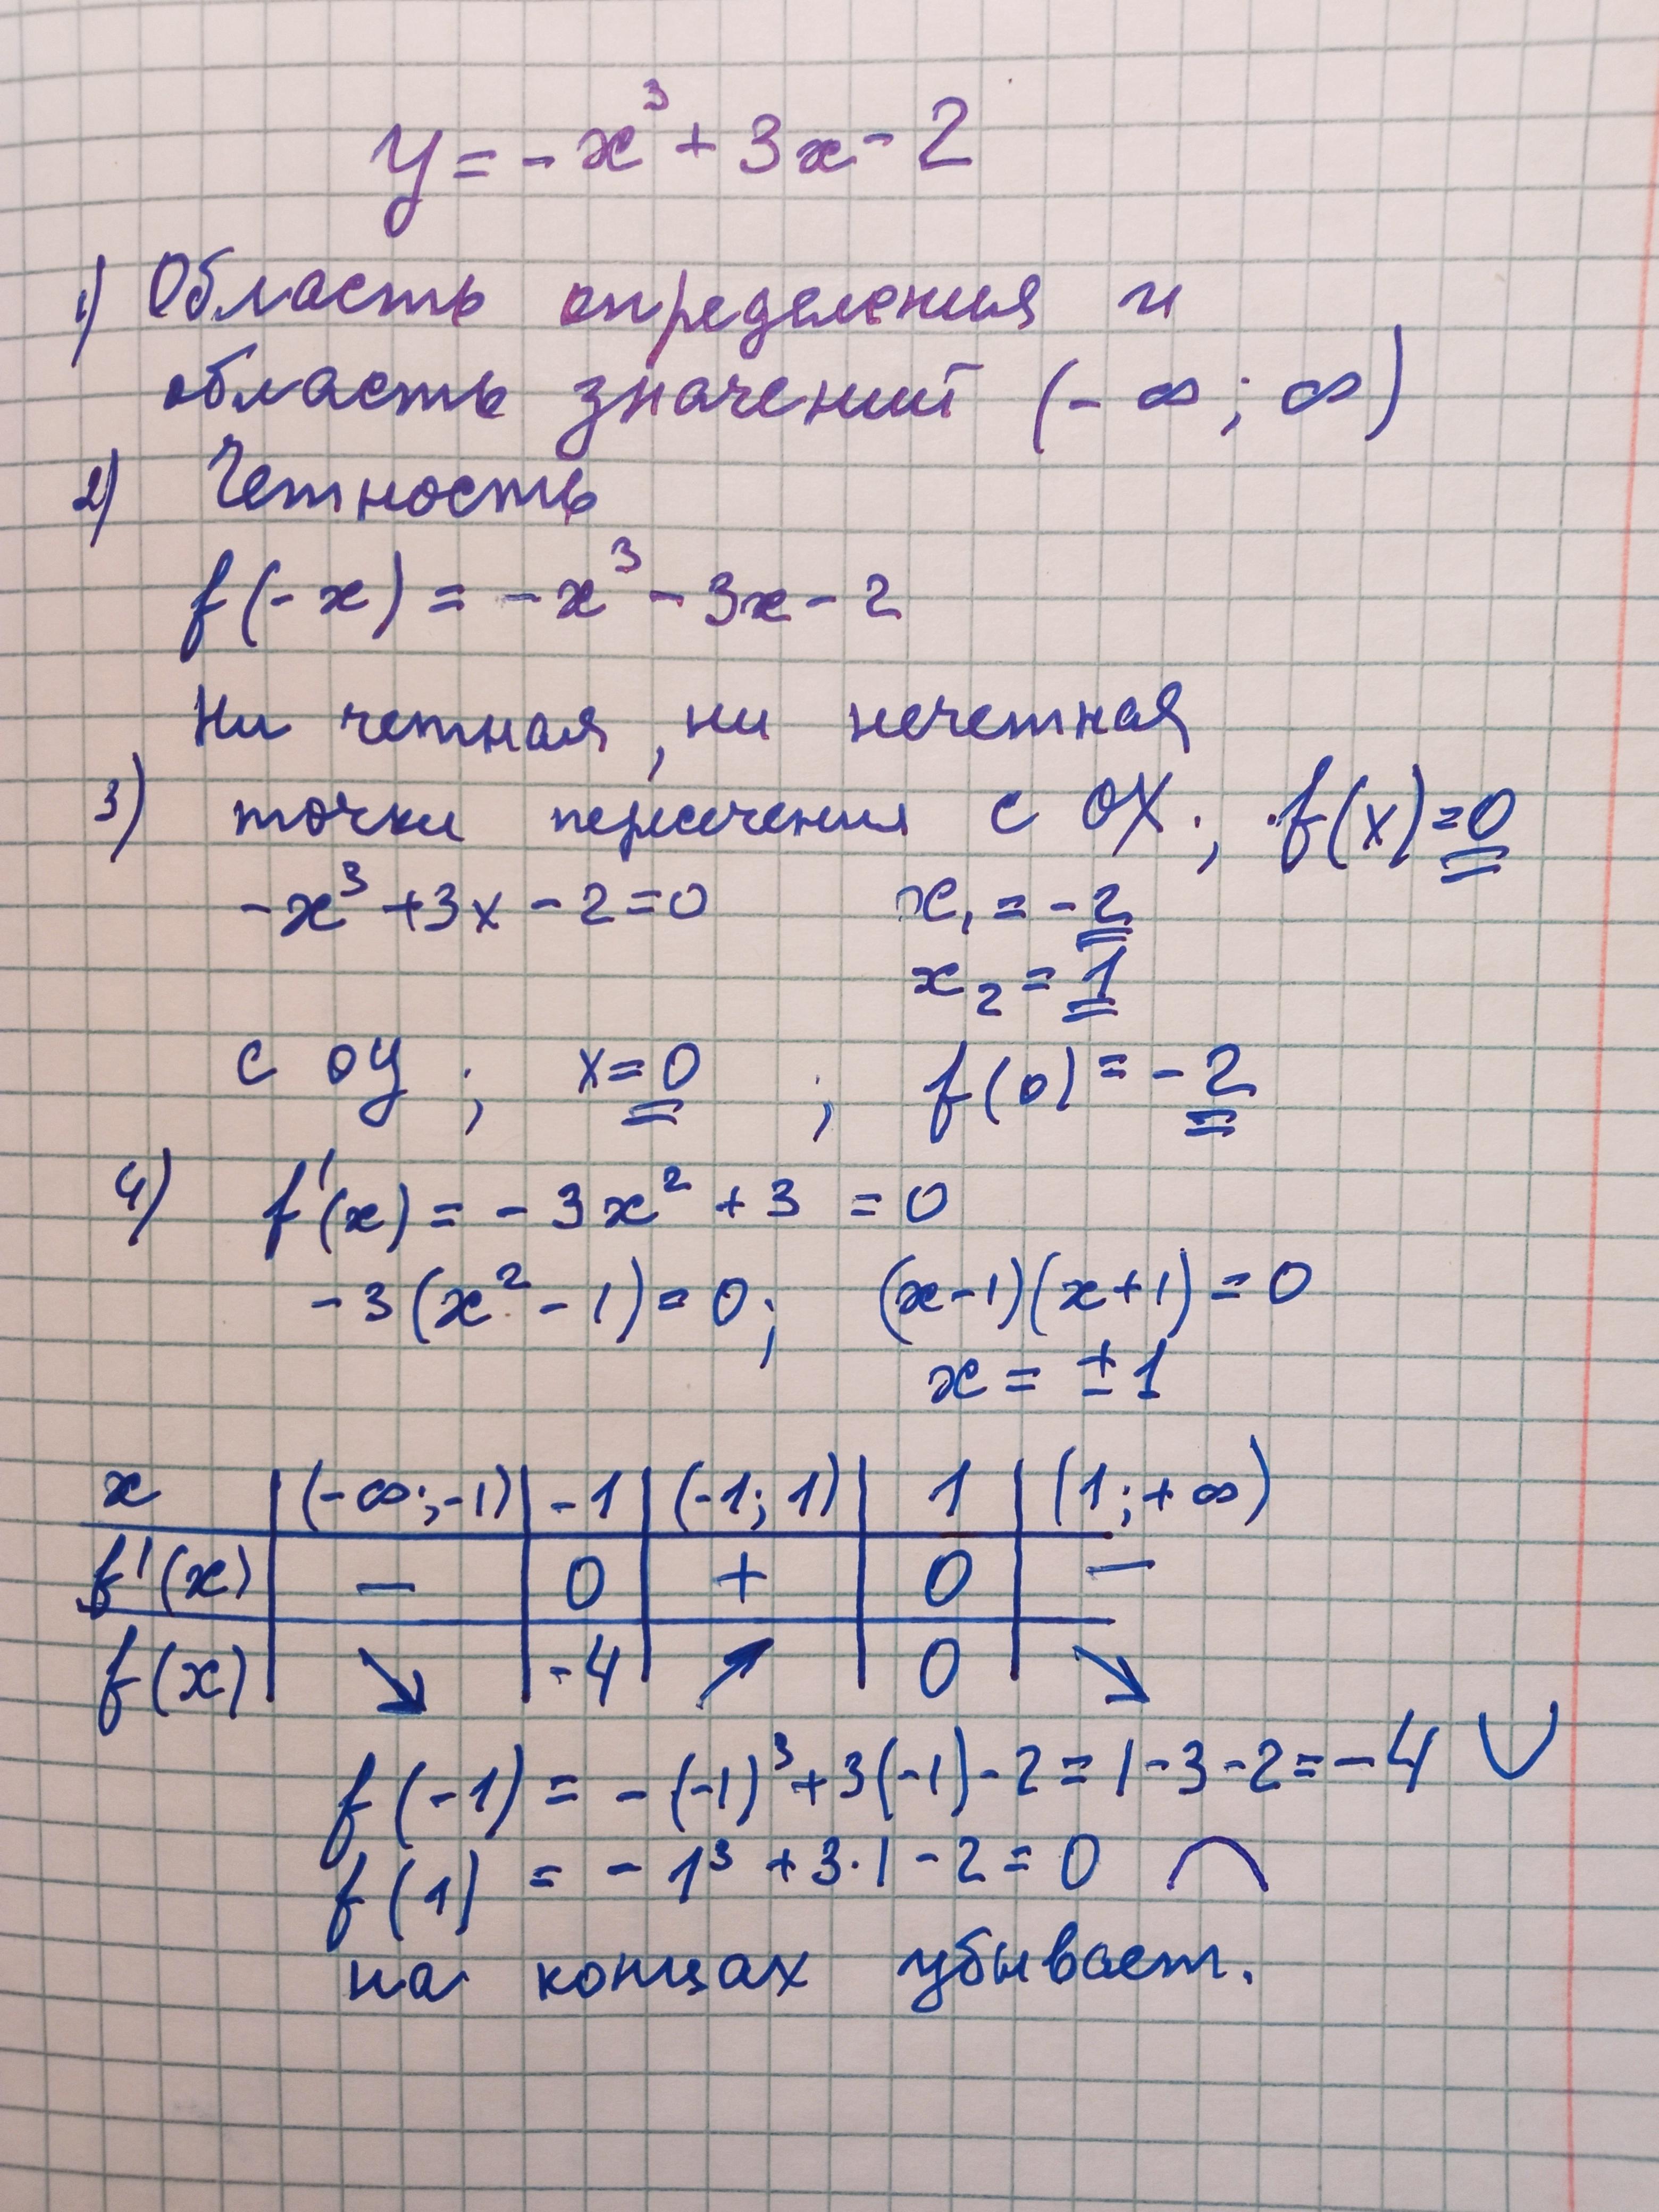 y = -x³ + 3x - 2
1) Область определения и
область значений (-∞; ∞)
2) Четность
f(-x) = -x³ - 3x - 2
Ни четная, ни нечетная
3) точки пересечения с OX; f(x)=0
-x³ + 3x - 2 = 0 x₁ = -2
x₂ = 1
с оy ; x=0 ; f(0) = -2
4) f'(x) = -3x² + 3 = 0
-3(x² - 1) = 0; (x-1)(x+1) = 0
x = ±1
x | (-∞; -1) | -1 | (-1; 1) | 1 | (1; +∞)
f'(x) | − | 0 | + | 0 | −
f(x) | ↘ | -4 | ↗ | 0 | ↘
f(-1) = -(-1)³ + 3(-1) - 2 = 1 - 3 - 2 = -4 ∪
f(1) = -1³ + 3·1 - 2 = 0 ∩
на концах убывает.